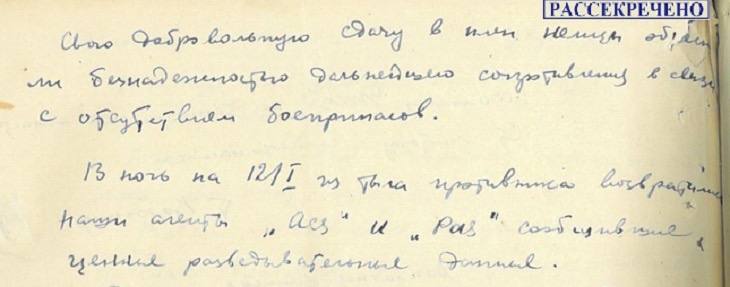 РАССЕКРЕЧЕНО
Свою добровольную сдачу в плен немцы объясни
ли безнадежностью дальнейшего сопротивления в связи
с отсутствием боеприпасов.
В ночь на 12/I из тыла противника возвратились
наши агенты „ и „ сообщившие
ценные разведывательные данные.